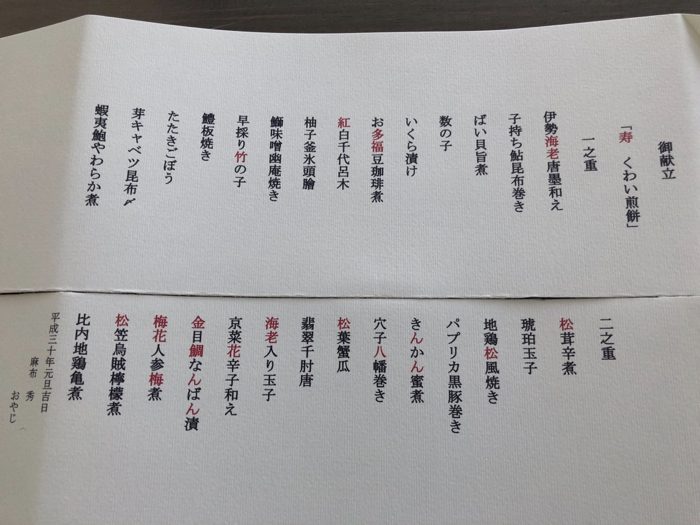 御献立
「寿　くわい煎餅」
一之重
伊勢海老唐墨和え
子持ち鮎昆布巻き
ばい貝旨煮
数の子
いくら漬け
お多福豆珈琲煮
紅白千代呂木
柚子釜氷頭膾
鰤味噌幽庵焼き
早採り竹の子
鱧板焼き
たたきごぼう
芽キャベツ昆布〆
蝦夷鮑やわらか煮
二之重
松茸辛煮
琥珀玉子
地鶏松風焼き
パプリカ黒豚巻き
きんかん蜜煮
穴子八幡巻き
松葉蟹瓜
翡翠千肘唐
海老入り玉子
京菜花辛子和え
金目鯛なんばん漬
梅花人参梅煮
松笠烏賊檸檬煮
比内地鶏亀煮
平成三十年元旦吉日
麻布　秀
おやじ